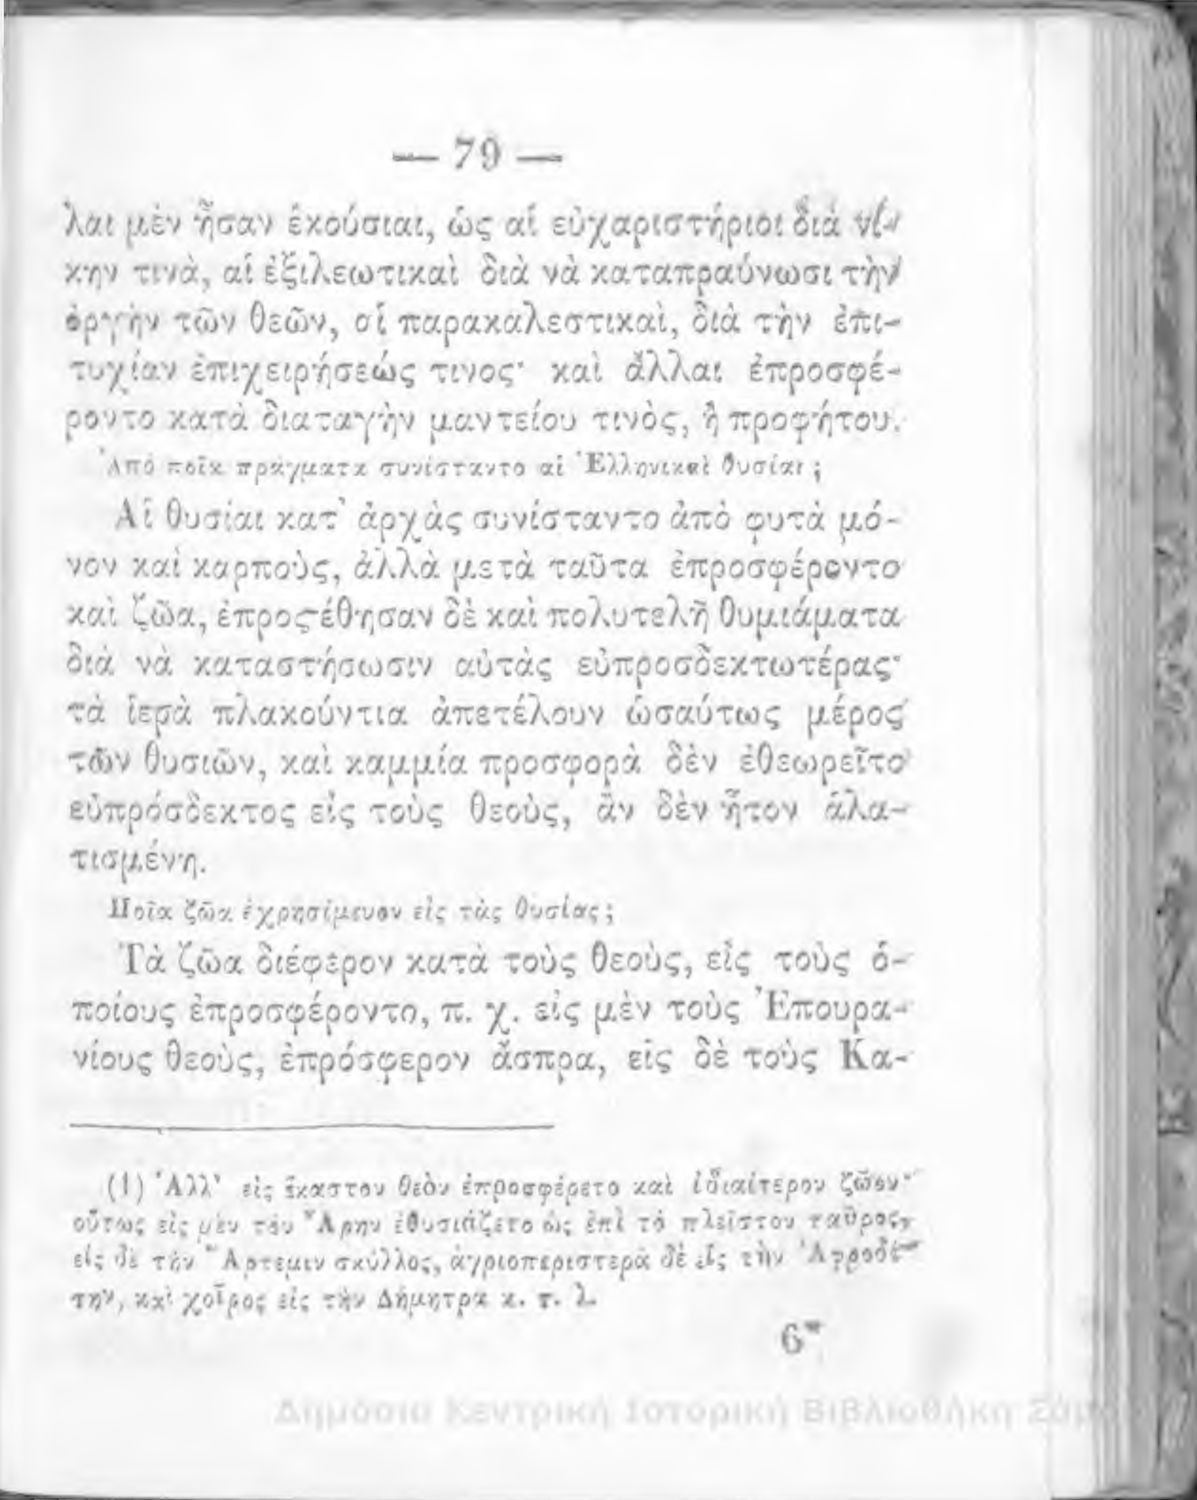 — 79 —
λαι μὲν ἦσαν ἑκούσιαι, ὡς αἱ εὐχαριστήριοι διὰ νί-
κην τινὰ, αἱ ἐξιλεωτικαὶ διὰ νὰ καταπραΰνωσι τὴν
ὀργὴν τῶν θεῶν, αἱ παρακαλεστικαὶ, διὰ τὴν ἐπι-
τυχίαν ἐπιχειρήσεώς τινος· καὶ ἄλλαι ἐπροσφέ-
ροντο κατὰ διαταγὴν μαντείου τινὸς, ἢ προφήτου.
Ἀπὸ ποῖα πράγματα συνίσταντο αἱ Ἑλληνικαὶ θυσίαι;
Αἱ θυσίαι κατ᾽ ἀρχὰς συνίσταντο ἀπὸ φυτὰ μό-
νον καὶ καρποὺς, ἀλλὰ μετὰ ταῦτα ἐπροσφέροντο
καὶ ζῶα, ἐπροςτέθησαν δὲ καὶ πολυτελῆ θυμιάματα
διὰ νὰ καταστήσωσιν αὐτὰς εὐπροσδεκτωτέρας·
τὰ ἱερὰ πλακούντια ἀπετέλουν ὡσαύτως μέρος
τῶν θυσιῶν, καὶ καμμία προσφορὰ δὲν ἐθεωρεῖτο
εὐπρόσδεκτος εἰς τοὺς θεοὺς, ἂν δὲν ἦτον ἁλα-
τισμένη.
Ποῖα ζῶα ἐχρησίμευον εἰς τὰς θυσίας;
Τὰ ζῶα διέφερον κατὰ τοὺς θεοὺς, εἰς τοὺς ὁ-
ποίους ἐπροσφέροντο, π. χ. εἰς μὲν τοὺς Ἐπουρα-
νίους θεοὺς, ἐπρόσφερον ἄσπρα, εἰς δὲ τοὺς Κα-
(1) Ἀλλ᾽ εἰς ἕκαστον θεὸν ἐπροσφέρετο καὶ ἰδιαίτερον ζῶον·
οὕτως εἰς μὲν τὸν Ἄρην ἐθυσιάζετο ὡς ἐπὶ τὸ πλεῖστον ταῦρος,
εἰς δὲ τὴν Ἄρτεμιν σκύλλος, ἀγριοπεριστερὰ δὲ εἰς τὴν Ἀφροδί-
την, καὶ χοῖρος εἰς τὴν Δήμητρα κ. τ. λ.
6*
Δημόσια Κεντρική Ιστορική Βιβλιοθήκη